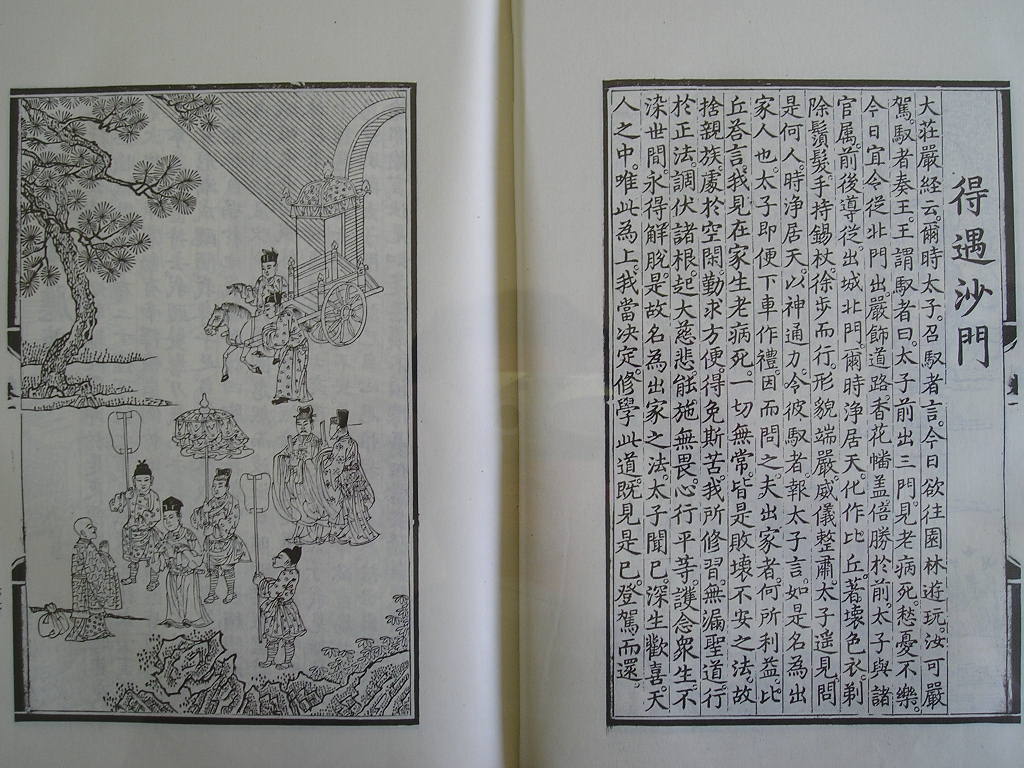 得遇沙門
大莊嚴經云。爾時太子。召馭者言。今日欲往園林遊玩。汝可嚴
駕。馭者奏王。王謂馭者曰。太子前出三門。見老病死。愁憂不樂。
今日宜令從北門出。嚴飾道路。香花幡蓋。倍勝於前。太子與諸
官属。前後導從。出城北門。爾時淨居天。化作比丘。著壞色衣。剃
除鬚髮。手持錫杖。徐步而行。形貌端嚴。威儀整肅。太子遥見。問
是何人。時淨居天。以神通力。令彼馭者。報太子言。如是名為出
家人也。太子即便下車作禮。因而問之。夫出家者。何所利益。比
丘荅言。我見在家生老病死。一切無常。皆是敗壞不安之法。故
捨親族。處於空閑。勤求方便。得免斯苦。我所修習。無漏聖道。行
於正法。調伏諸根。起大慈悲。能施無畏。心行平等。護念衆生。不
染世間。永得解脫。是故名為出家之法。太子聞已。深生歡喜。天
人之中。唯此為上。我當决定。修學此道。既見是已。登駕而還。